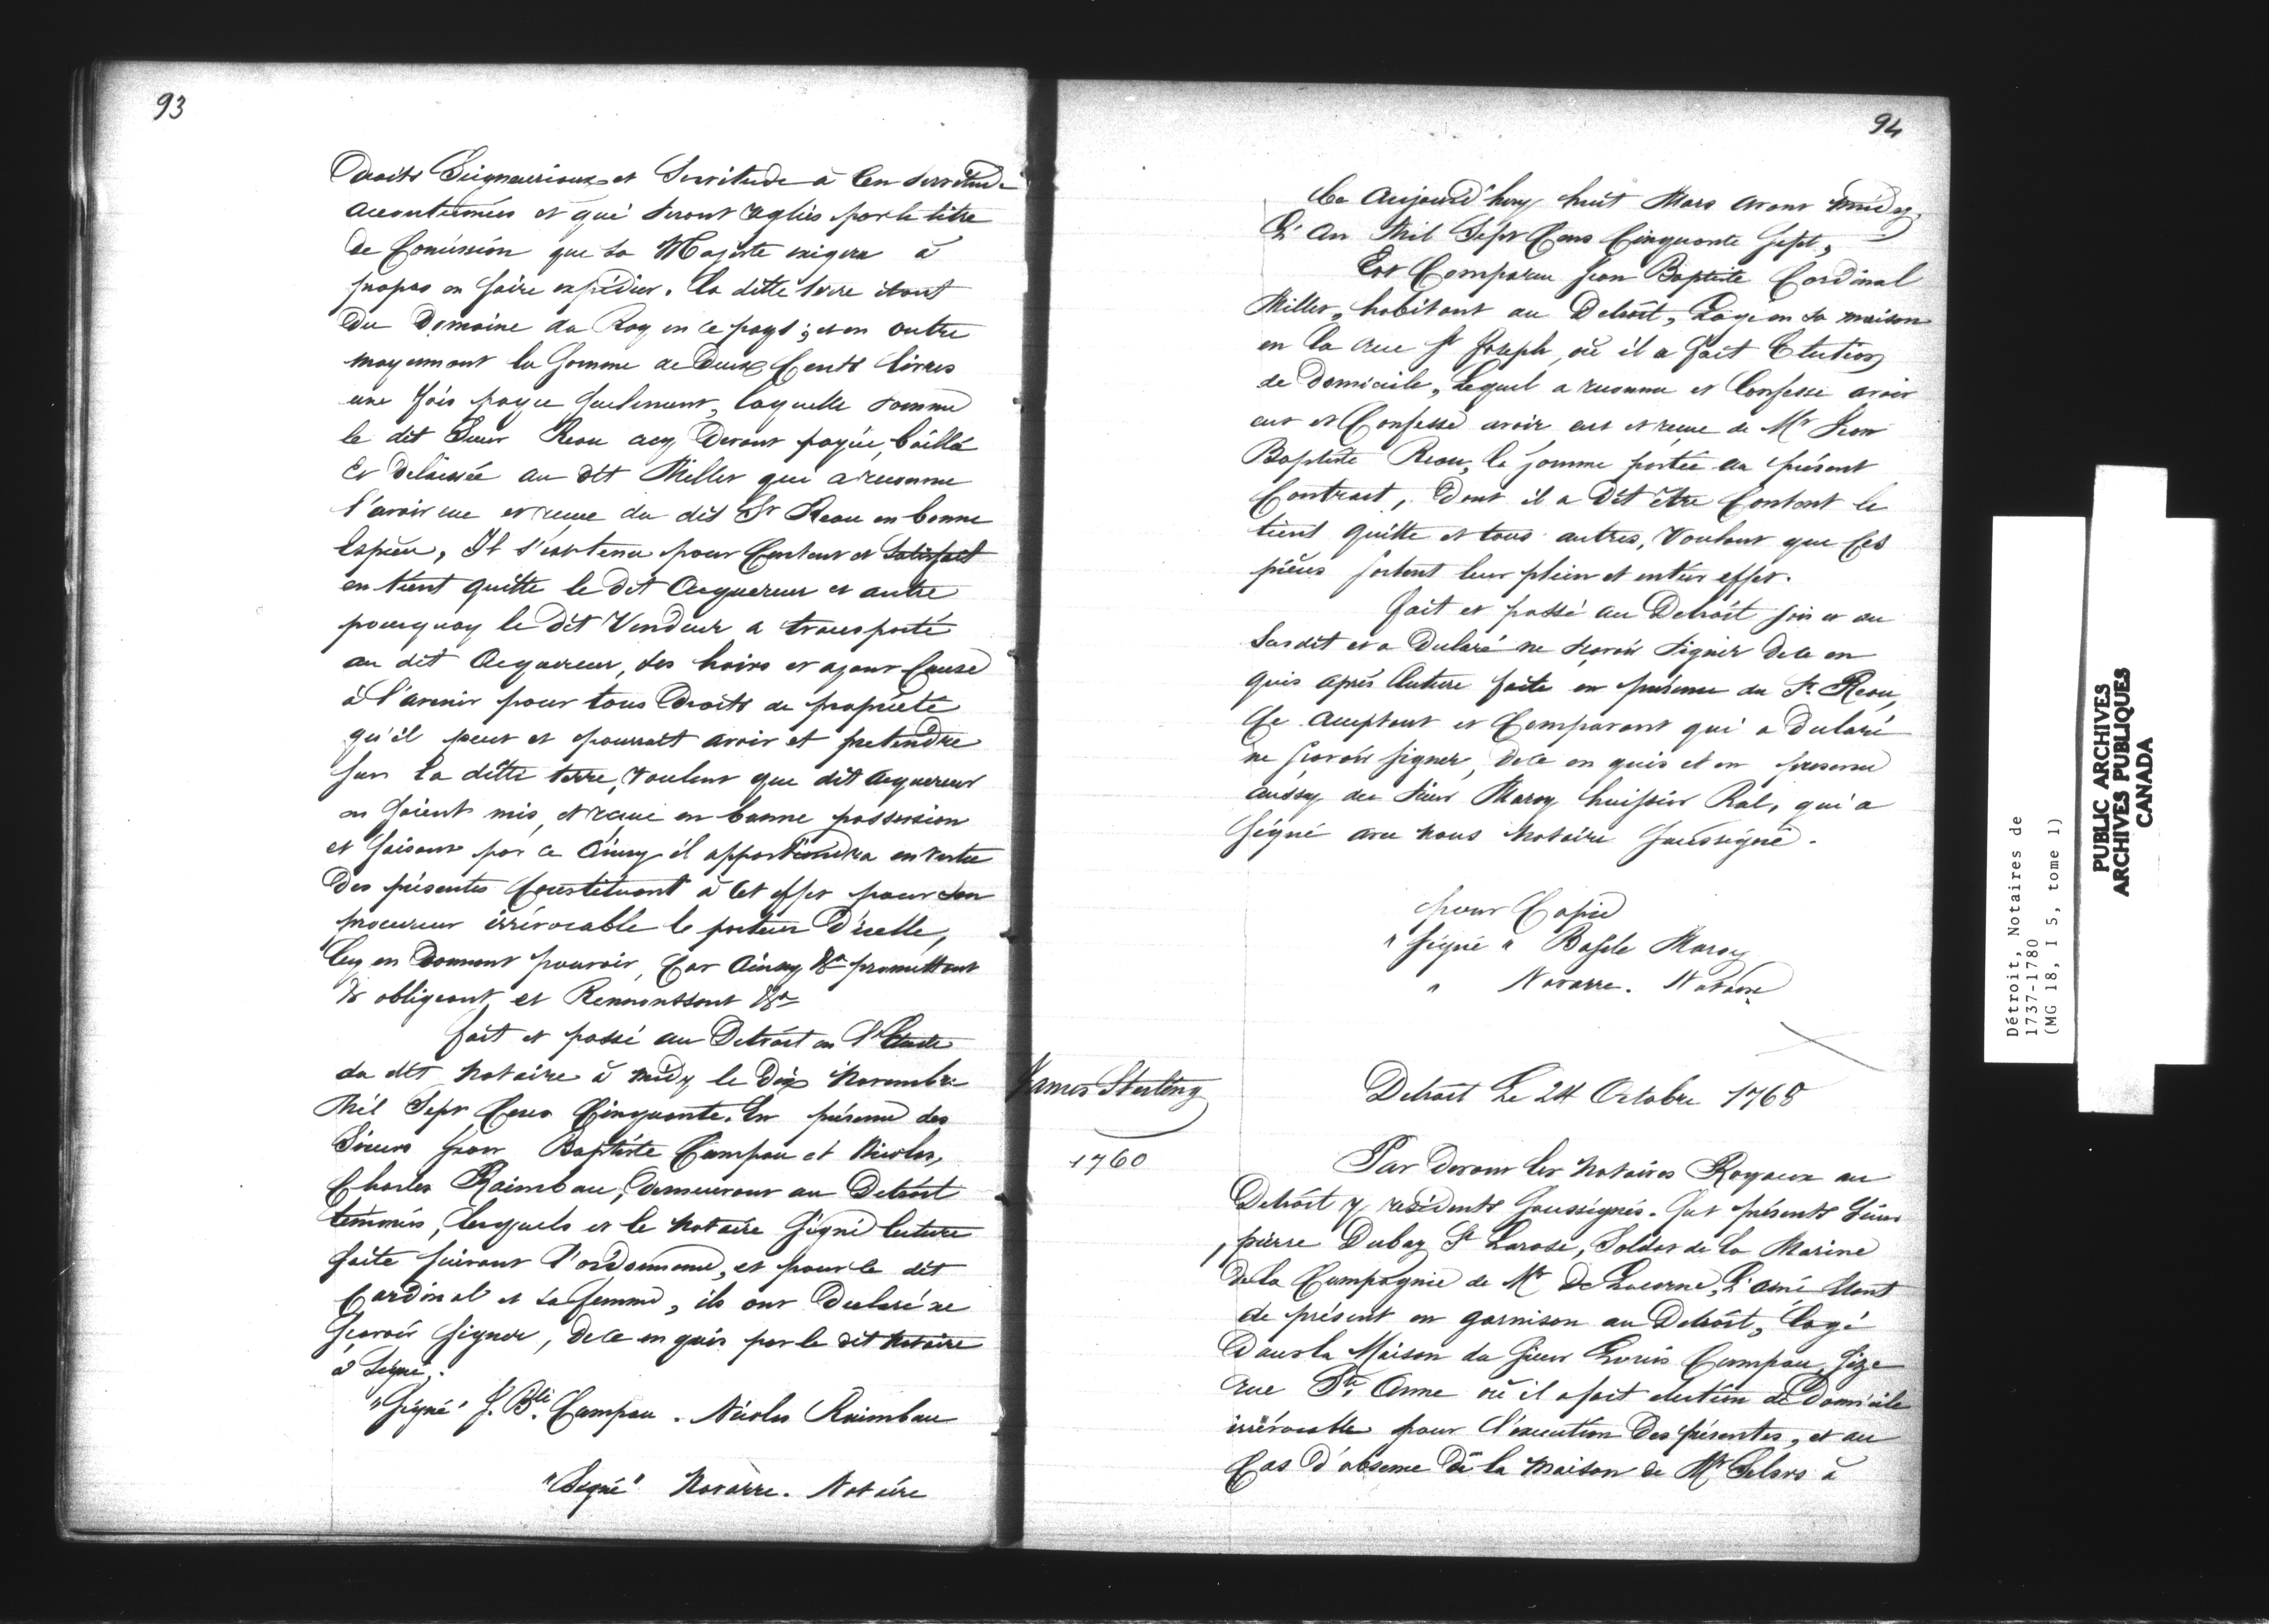 93
Droits Seigneuriaux et Servitude à Cen servitude
accoutumées et qui seront reglés par le titre
de Comission que sa Majeste exigera à
propos en faire expedier. la ditte terre étant
du Domaine du Roy en ce pays ; et en outre
moyennant la somme de Deux Cents livres
une fois payée seulement, laquelle somme
le dit Sieur Reau acy Devant payée, baillé
Et Delaissée au dit Miller qui a reconnu
l'avoir eue et reçue du dit Sr Reau en bonne
Espèce, Il s'est tenu pour Content et Satisfait
en tient quitte le dit Acquereur et autre
pourquoy le dit Vendeur a transporté
au dit Acquereur, ses hoirs et ayant Cause
à l'avenir pour tous Droits de propriété
qu'il peut et pourrait avoir et pretendre
sur la ditte terre, Voulant que dit acquereur
en soient mis, et reçue en bonne possession
et faisant par ce Ainsy il appartiendra en vertu
Des présentes Constituant à Cet effet pour son
procureur irrévocable le porteur D'icelle,
luy en Donnant pouvoir, Car Ainsy &a promettant
&a obligeant, et Renonssant &a
fait et passé au Detroit en l'Etude
du dit Notaire à midy le Dix Novembre
Mil Sept Cens Cinquante. En présence des
Sieurs Jean Baptiste Campau et Nicolas,
Charles Raimbau, demeurant au Detroit
témoins, lesquels et le Notaire signé lecture
faite suivant l'ordonnance, et pour le dit
Cardinal et sa femme, ils ont Declaré ne
sçavoir signer, de ce enquis par le dit Notaire
a Signé.
"Signé" J. Bte Campau. Nicolas Raimbau
"Signé" Navarre. Notaire
94
Ce Aujourd'huy huit Mars avant midy,
L'An Mil Sept Cens Cinquante Sept,
Est Comparu Jean Baptiste Cardinal
Miller, habitant au Detroit, Logé en sa maison
en la rue St Joseph, où il a fait Election
de Domicile, Lequel a reconnu et Confessé avoir
eut et Confessé avoir eut et reçue de Mr Jean
Baptiste Reau, la somme portée au présent
Contract, Dont il a Dit être Content le
tient quitte et tous autres, Voulant que Ces
pièces sortent leur plein et entier effet.
fait et passé au Detroit jour et an
Susdit et a Declaré ne savoir signer de ce en
quis après lecture faite en présence du Sr Reau,
Ce acceptant et Comparant qui a Declaré
ne sçavoir signer, de ce en quis et en presence
aussy du sieur Maroy huissier Ral, qui a
signé avec nous Notaire soussigné.
pour Copie
" signé " Basile Maroy
" Navarre. Notaire
James Sterling
1760
Detroit Le 24 Octobre 1768
Par devant les Notaires Royaux au
Detroit y résidents soussignés. fut présents Sieur
pierre Dubay St Larose, Soldat de la Marine
de la Compagnie de Mr De Lacorne, L'ainé étant
de présent en garnison au Detroit, logé
Dans la Maison du sieur Louis Campau, size
rue Ste Anne où il a fait election de Domicile
irrévocable pour l'execution Des présentes, et au
Cas d'absence de la maison de Mr à
Détroit, Notaires de
1737-1780
(MG 18, I 5, tome 1)
PUBLIC ARCHIVES
ARCHIVES PUBLIQUES
CANADA